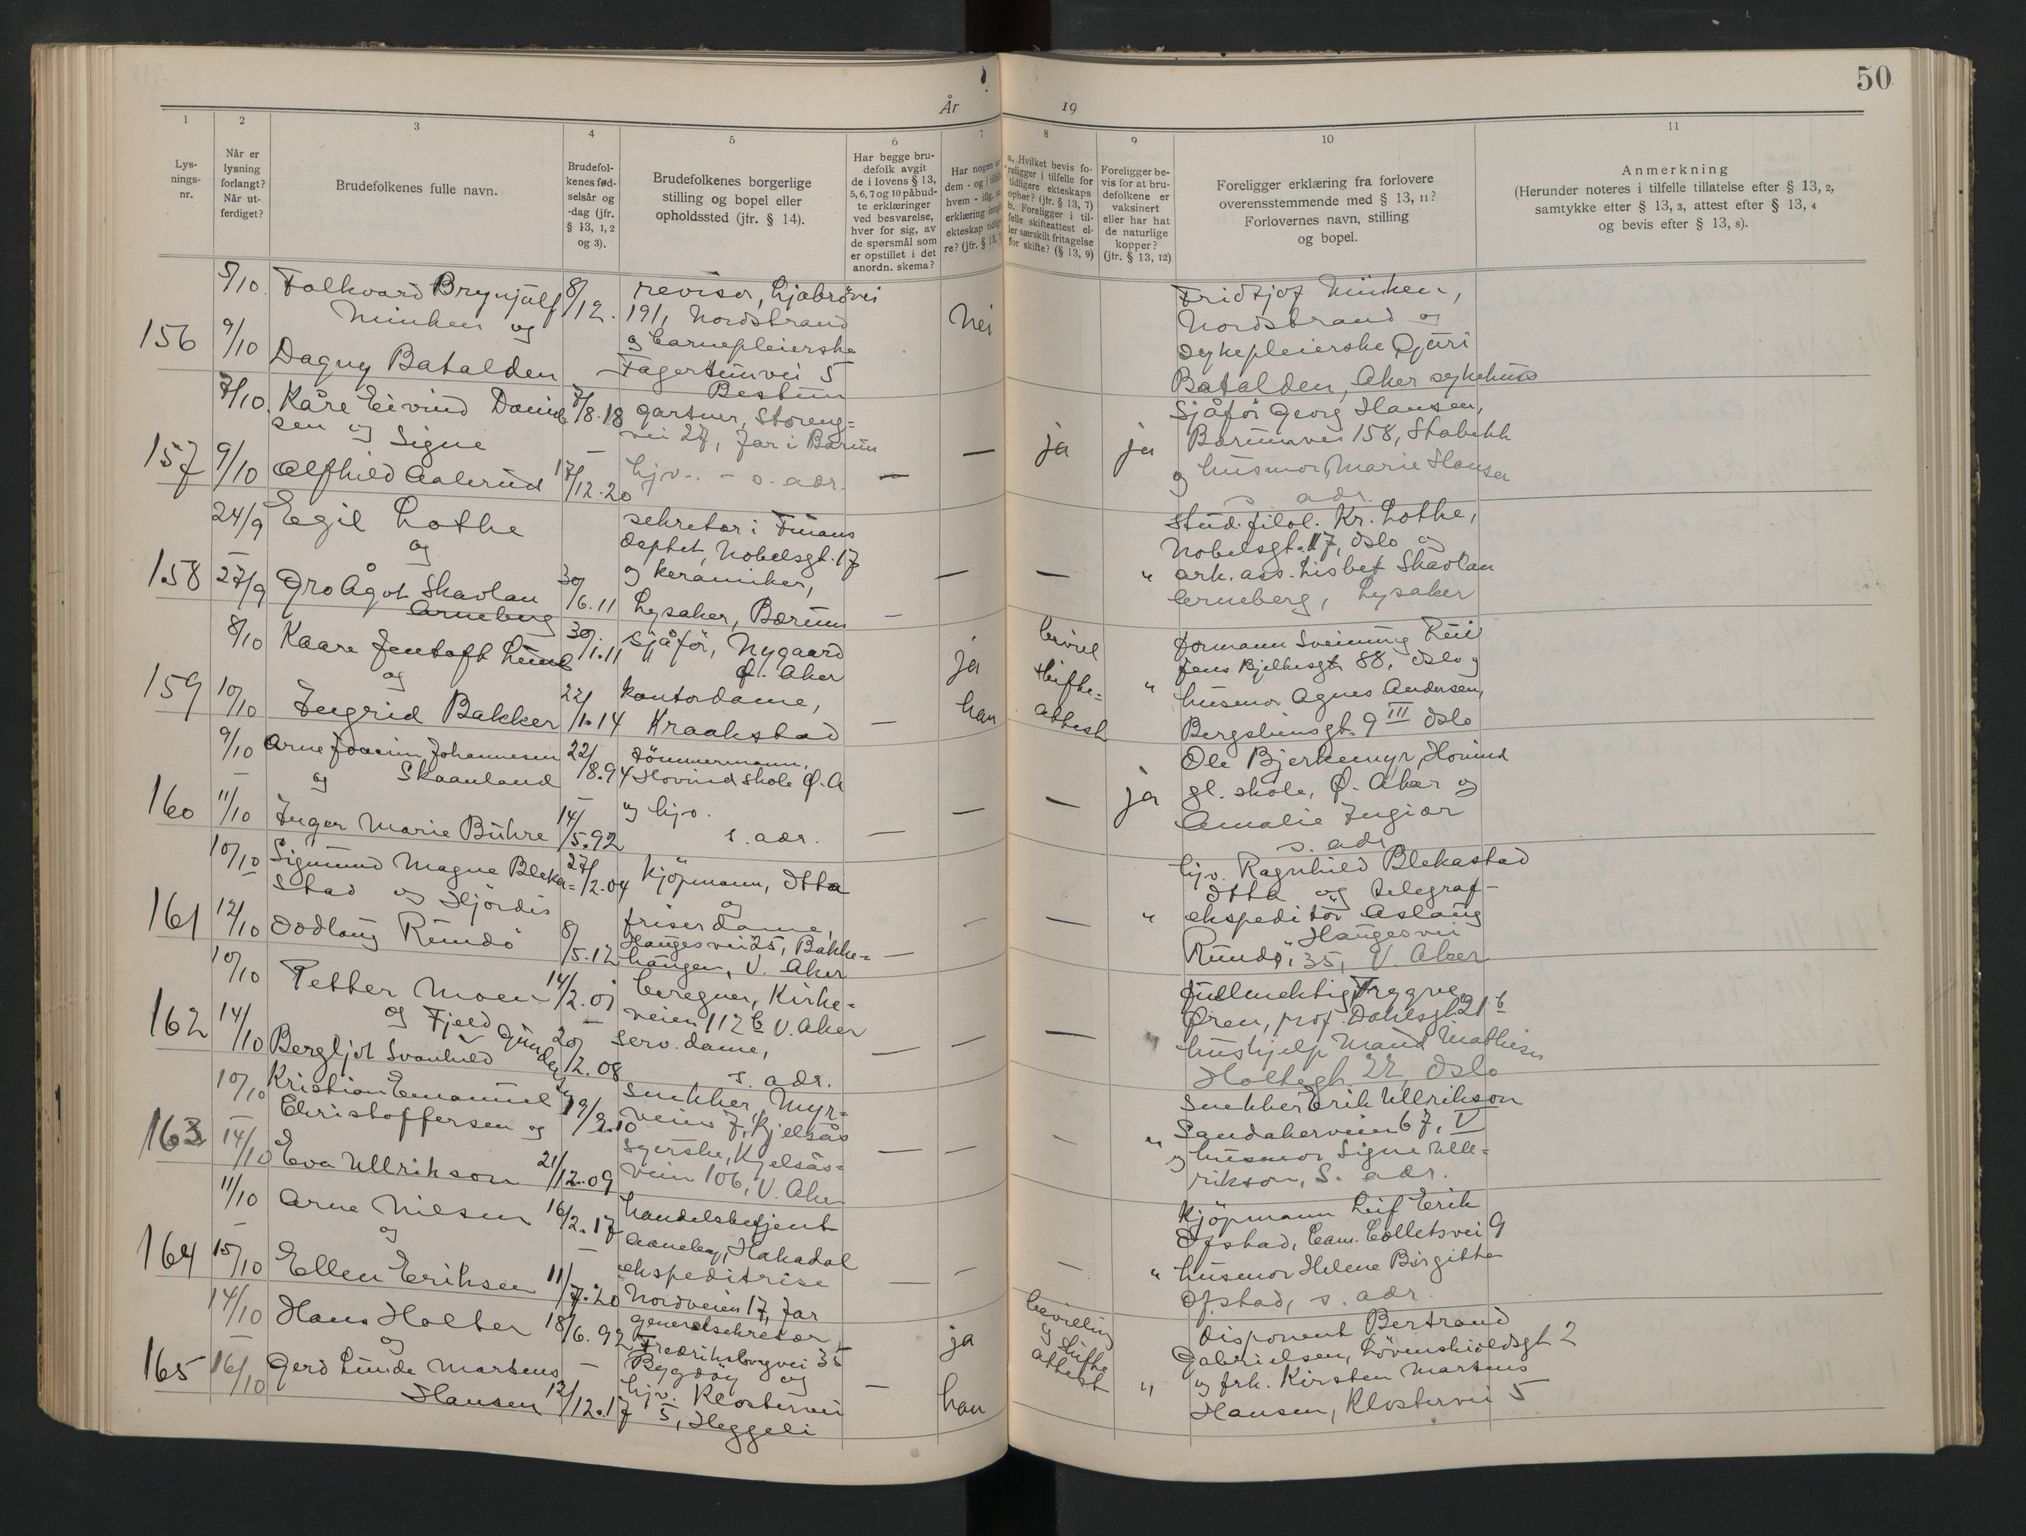 50
År
19
1
2
3
4
5
6
7
8
9
10
11
Lys-
nings-
nr.
Når er
lysning
forlangt?
Når ut-
ferdiget?
Brudefolkenes fulle navn.
Brudefol-
kenes fød-
selsår og
-dag (jfr.
§ 13, 1, 2
og 3).
Brudefolkenes borgerlige
stilling og bopel eller
opholdssted (jfr. § 14).
Har begge bru-
defolk avgit
de i lovens § 13,
5, 6, 7 og 10 påbud-
te erklæringer
ved besvarelse,
hver for sig, av
de spørsmål som
er opstillet i det
anordn. skema?
Har nogen av
dem - og i
hvem - ifig.
erklæring
ekteskap
re? (jfr. § 13,
a. Hvilket bevis fo-
religger i tilfelle for
tidligere ekteskaps
ophør? (jfr. § 13, 7)
b. Foreligger i til-
felle skifteattest el-
ler særskilt fritagelse
for skifte? (§ 13, 9)
Foreligger be-
vis for at bru-
defolkene er
vaksinert
eller har hat
de naturlige
kopper?
(jfr. § 13, 12)
Foreligger erklæring fra forlovere
overensstemmende med § 13, 11?
Forlovernes navn, stilling
og bopel.
Anmerkning
(Herunder noteres i tilfelle tillatelse efter § 13, 2,
samtykke etter § 13, 3, attest efter § 13, 4
og bevis efter § 13, 8).
156
5/10
9/10
Folkvard Brynjulf
og
Dagny Batalden
8/12.
revisor, Ljabrovei
191, Nordstrand
og barnepleierske
Fagertunvei 5
Bestum
Nei
Fridtjof
Nordstrand og
sykepleierske Djuri
Batalden, Aker sykehus
157
7/10.
9/10
Kåre Eivind Daniel
sen og Signe
Alfhild Aalerud
7/8.18
—
17/12.20
gartner, Storeng-
vei 27, Jar i Bærum
hjv. – s. adr.
—
—
ja
ja
Sjåfør Georg Hansen,
Bærumsvei 158, Stabekk
og husmor Marie Hansen
s. adr.
158
24/9
27/9
Egil Lothe
og
Gro Ågot Skavlan
Arneberg
30/6.11
sekretær i Finans
deptet, Nobelsgt. 17
og keramiker,
Lysaker, Bærum
—
—
—
"
Stud. filol. Kr. Lothe,
Nobelsgt. 17, Oslo og
ark. ass. Lisbet Skavlan
Arneberg, Lysaker
159
8/10
10/10
Kaare Jentoft Lund
og
Ingrid Bakker
30/1.11
22/10.14
sjåfør, Nygaard
Ø. Aker
kontordame,
Kraakstad
—
ja
han
bevill
skifte-
attest
"
formann Sveinung Ruu
Jens Bjelkesgt 88, Oslo og
husmor Agnes Andersen,
Bergsliensgt. 9 III Oslo
160
9/10
11/10
Arne Joacim Johannesen
og Skaanland
Inger Marie Buhre
22/8.94
14/5.92
tømmermann,
Hovind skole Ø. A
og hjv.
s. adr.
—
—
—
ja
Ole Bjerkemyr, Hovind
gl. skole, Ø. Aker og
Amalie Ingier
s. adr.
161
10/10
12/10
Sigmund Magne Bleka-
stad og Hjördis
Oddlaug Rundö
27/2.04
8/5.12
kjöpmann, Otta
og
friserdame,
Haugesvei 25, Bakke-
haugen, V. Aker
—
—
—
"
hjv. Ragnhild Blekastad
Otta og telegraf-
ekspeditör Aslaug
Haugesvei
Rundö, 35, V. Aker
162
10/10
14/10
Petter Moen
og Fjeld
Bergljot Svanhild Gunde
14/2.01
20/2.08
beregner, Kirke-
veien 112 b V. Aker
serv. dame,
s. adr.
—
—
—
"
fullmektig Trygve
Øren, prof. Dahlsgt. 21 b
hushjelp Maud Mathisen
Holtegt. 22, Oslo
163
10/10
14/10
Kristian Emanuel
Christoffersen og
Eva Ullrikson
19/2.10
21/12.09
snekker, Myr-
veien 7, Kjelsås
syerske, Kjelsås-
veien 106, V. Aker
—
—
—
"
Snekker Erik Ullrikson
Sandakerveien 67, V
og husmor Signe Ulle-
rikson, S. adr.
164
11/10
15/10
Arne Nilsen
og
Ellen Eriksen
16/2.17
11/7.20
handelsbetjent
Aaneby, Hakadal
ekspeditrise
Nordveien 17, Jar
—
—
—
"
Kjöpmann Leif Erik
Ofstad, Cam. Colletsvei 9
husmor Helene Birgitte
Ofstad, s. adr.
165
14/10
16/10
Hans Holter
og
Gerd Lunde Martens
Hansen
18/6.92
—
12/12.17
generalsekretær,
Fredriksborgvei 35
Bygdöy og
hjv. Klostervei
5, Heggeli
—
ja
han
bevilling
og skifte
attest
"
Disponent Bertrand
Gabrielsen, Lövenskioldsgt 2
og frk. Kirsten Martens
Hansen, Klostervei 5